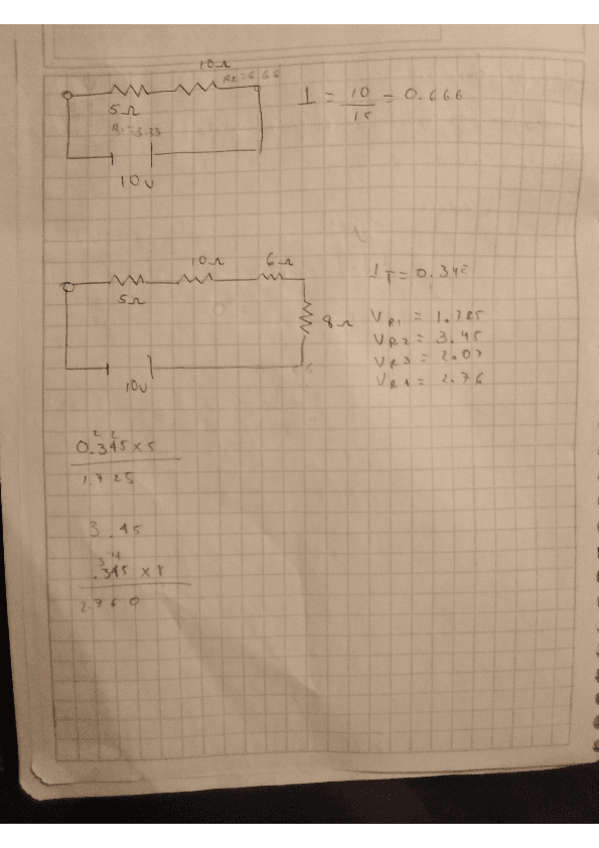 10Ω
R2=6.66
5Ω
R1=3.33
10v
I = 10/15 = 0.666
10Ω 6Ω
5Ω
8Ω
10v
I T = 0.345
V R1 = 1.725
V R2 = 3.45
V R3 = 2.07
V R4 = 2.76
2 2
0.345 x 5
1.725
3.45
3 4
.345 x 8
2.760